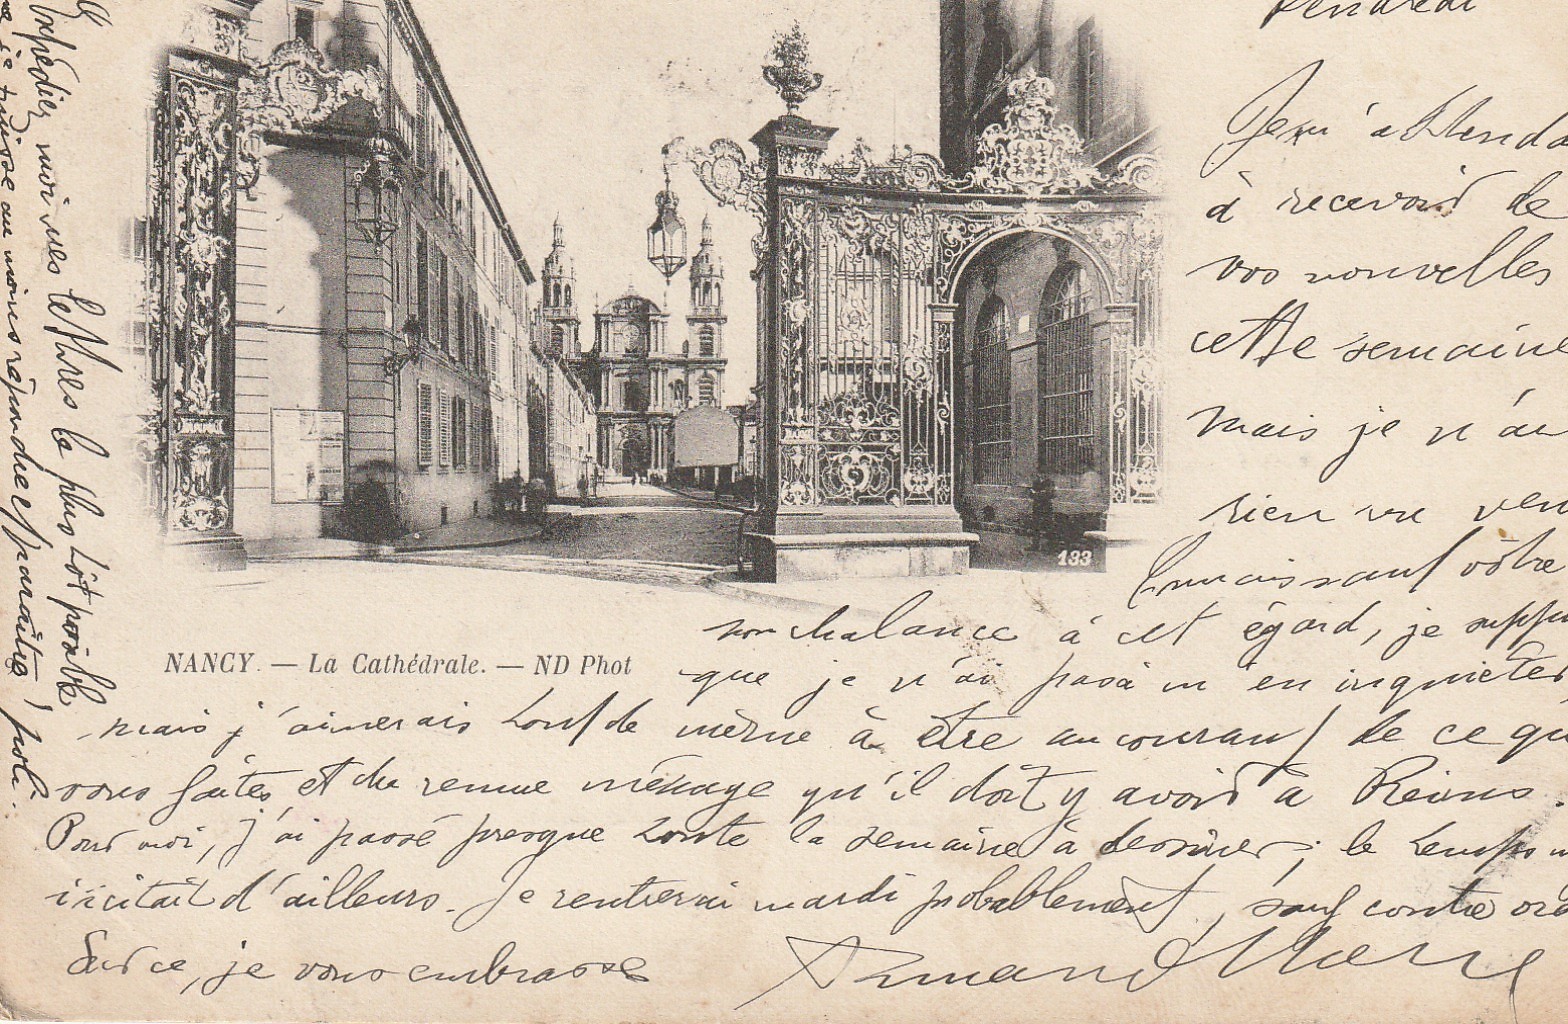 Vendredi
Je m'attenda
à recevoir de
vos nouvelles
cette semaine
mais je n'ai
rien vu ven
Connaissant votre
nonchalance à cet égard, je suppo
que je n'ai pas à m'en inquiéter
mais j'aimerais tout de même à être au courant de ce qu
vous faites, et du remue ménage qu'il doit y avoir à Reims.
Pour moi, j'ai passé presque toute la semaine à dessiner; le temps m'
incitait d'ailleurs. Je rentrerai mardi probablement, sauf contre ord
Sur ce, je vous embrasse
Armand
133
NANCY. — La Cathédrale. — ND Phot
Expédiez moi ues lettres le plus tôt possible
je puisse au moins répondre et paraître poli.